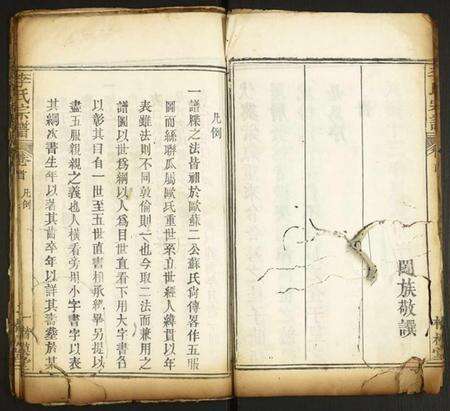 闔族敬譔
凡例
一譜牒之法皆祖於歐蘇二公蘇氏尚傳畧作五服
圖而絲聯瓜屬歐氏重世系立世經人緯貫以年
表雖法則不同敦倫則一也今取二法而兼用之
譜圖以世爲綱以人爲目世直看下用大字書名
以彰其曰有一世至五世直書相承紹畢另提以
盡五服親親之義也人橫看旁用小字書字以表
其綱次書生年以著其齒卒年以詳其壽塟於某
李氏宗譜
卷首
凡例